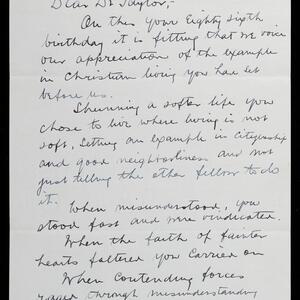 Dear Dr Taylor,
On this your Eighty sixth
birthday it is fitting that we voice
our appreciation of the example
in Christian living you have set
before us.
Shunning a softer life you
chose to live where living is not
soft, setting an example in citizenship
and good neighborliness and not
just telling the other fellow to do
it.
When misunderstood, you
stood fast and were vindicated.
When the faith of fainter
hearts faltered you carried on
When contending forces
raged through misunderstanding